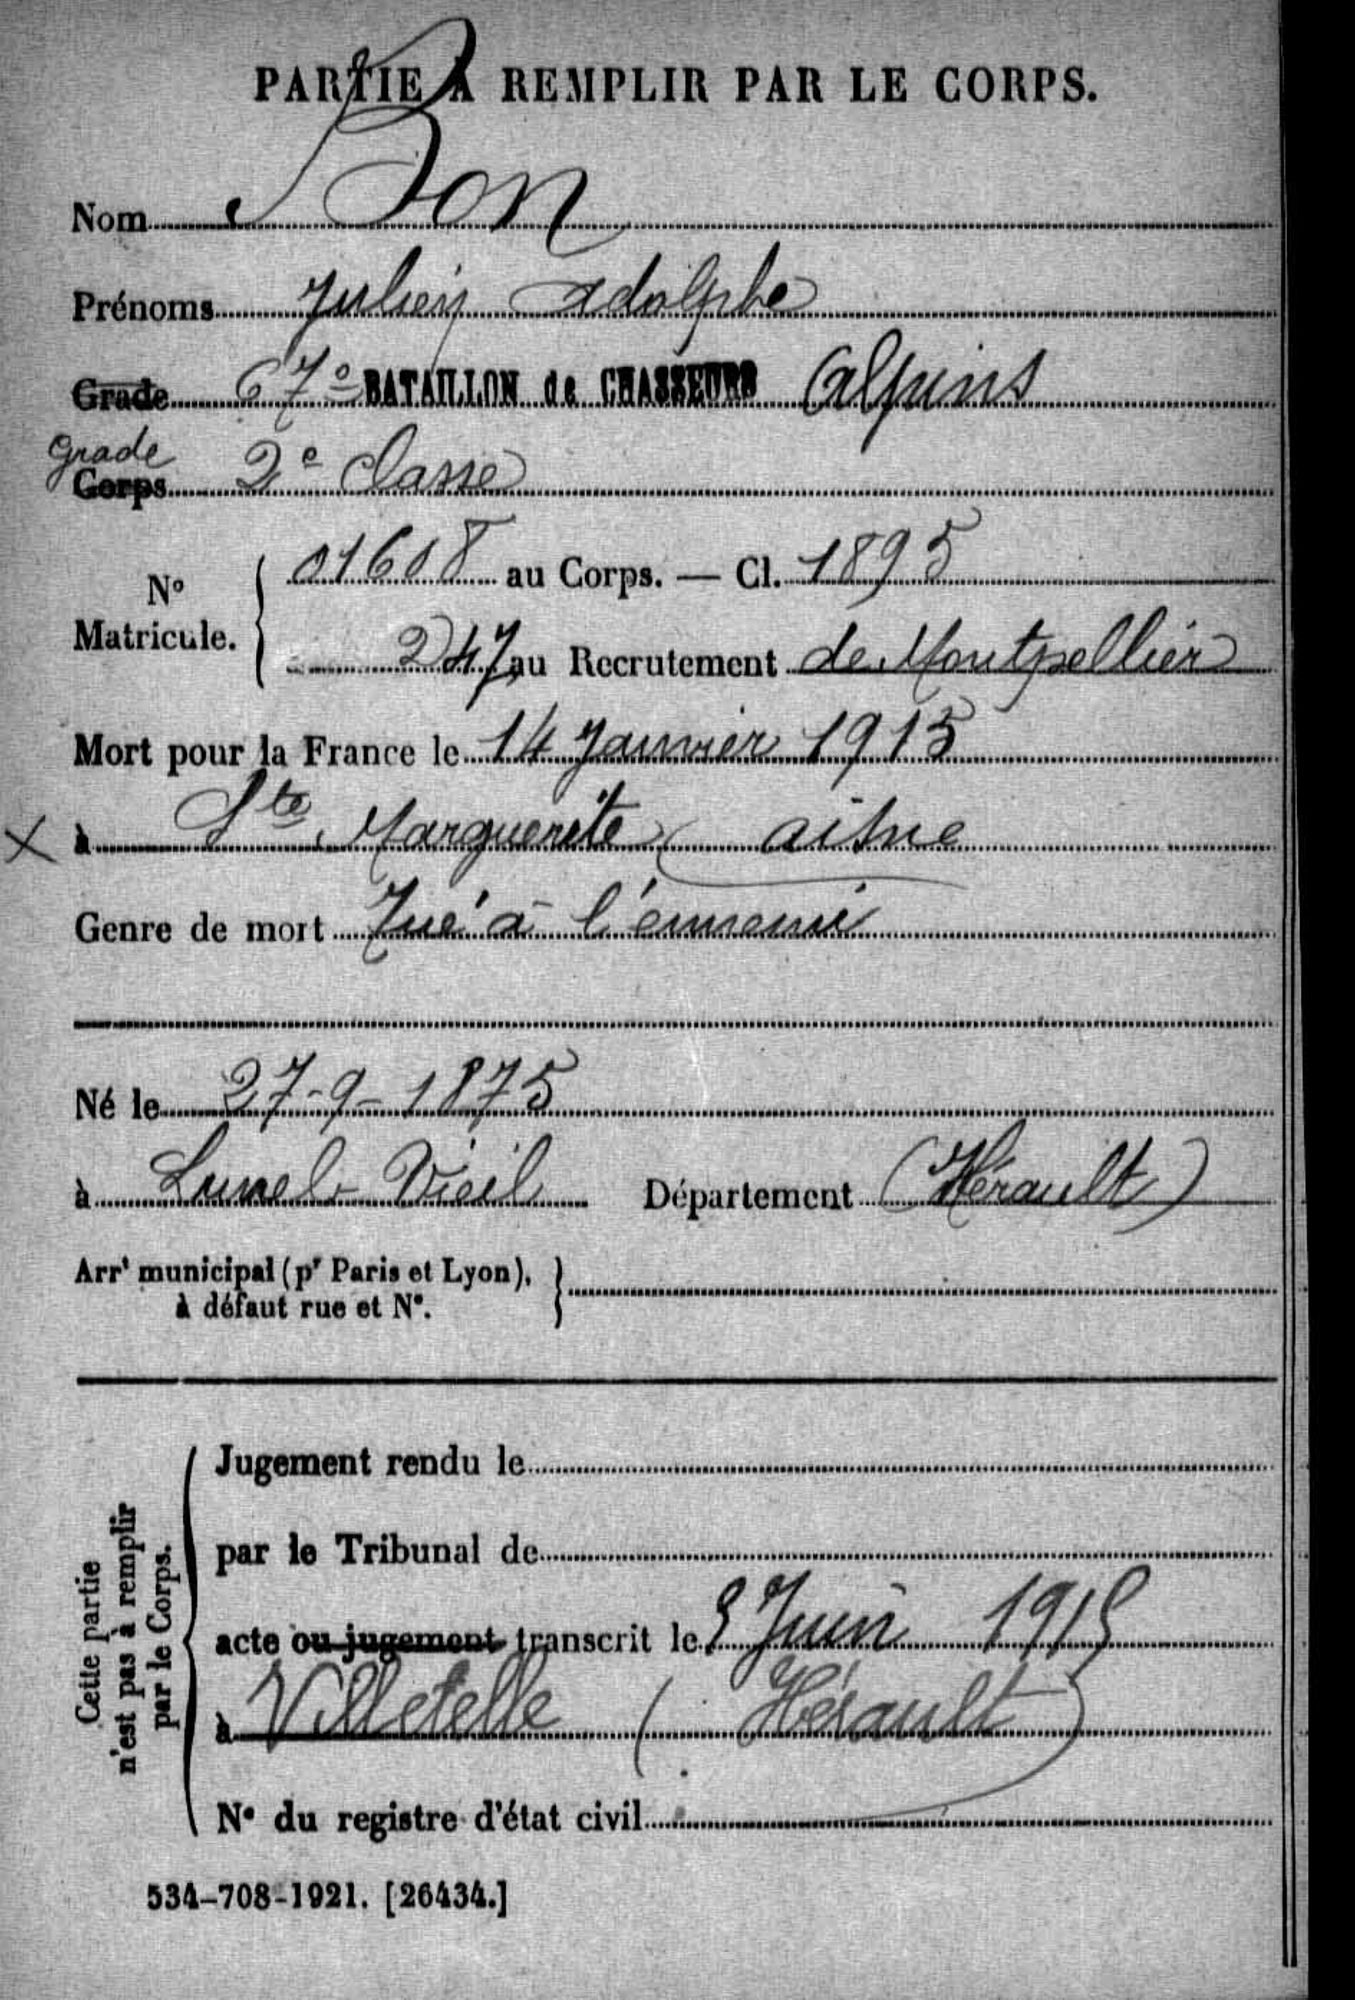 PARTIE À REMPLIR PAR LE CORPS.
Nom Bon
Prénoms Julien Adolphe
Grade 67e BATAILLON de CHASSEURS Alpins
Grade
Corps 2e classe
No Matricule. { 01608 au Corps. — Cl. 1895
247 au Recrutement de Montpellier
Mort pour la France le 14 Janvier 1915
X à Ste Marguerite ( aisne
Genre de mort Tué à l'ennemi
Né le 27-9-1875
à Lunel-Vieil Département (Hérault)
Arrt municipal (pr Paris et Lyon),
à défaut rue et No.
Cette partie
n'est pas à remplir
par le Corps.
Jugement rendu le
par le Tribunal de
acte ou jugement transcrit le Juin 1915
à Villetelle ( Hérault )
No du registre d'état civil
534-708-1921. [26434.]